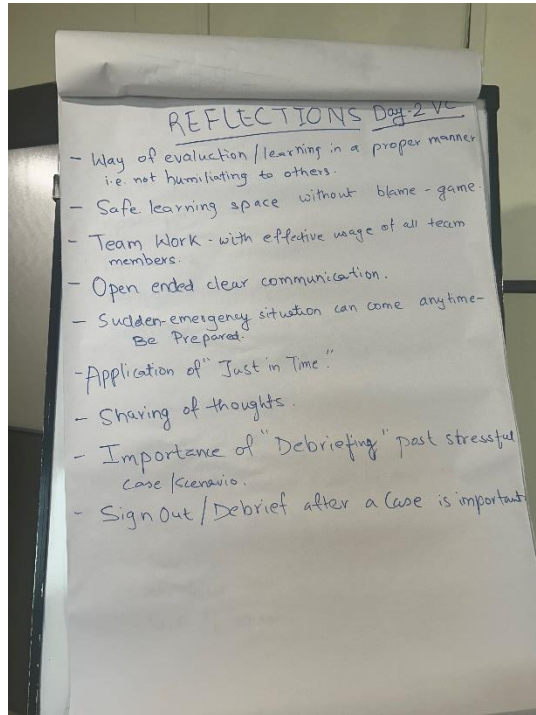 REFLECTIONS Day-2 VC
- Way of evaluction/learning in a proper manner
i.e. not humiliating to others.
- Safe learning space without blame-game.
- Team Work - with effective usage of all team
members.
- Open ended clear communication.
- Sudden-emergency situation can come anytime-
Be Prepared.
- Application of "Just in Time."
- Sharing of thoughts.
- Importance of "Debriefing" past stressful
Case/Scenario.
- Sign Out/Debrief after a Case is important